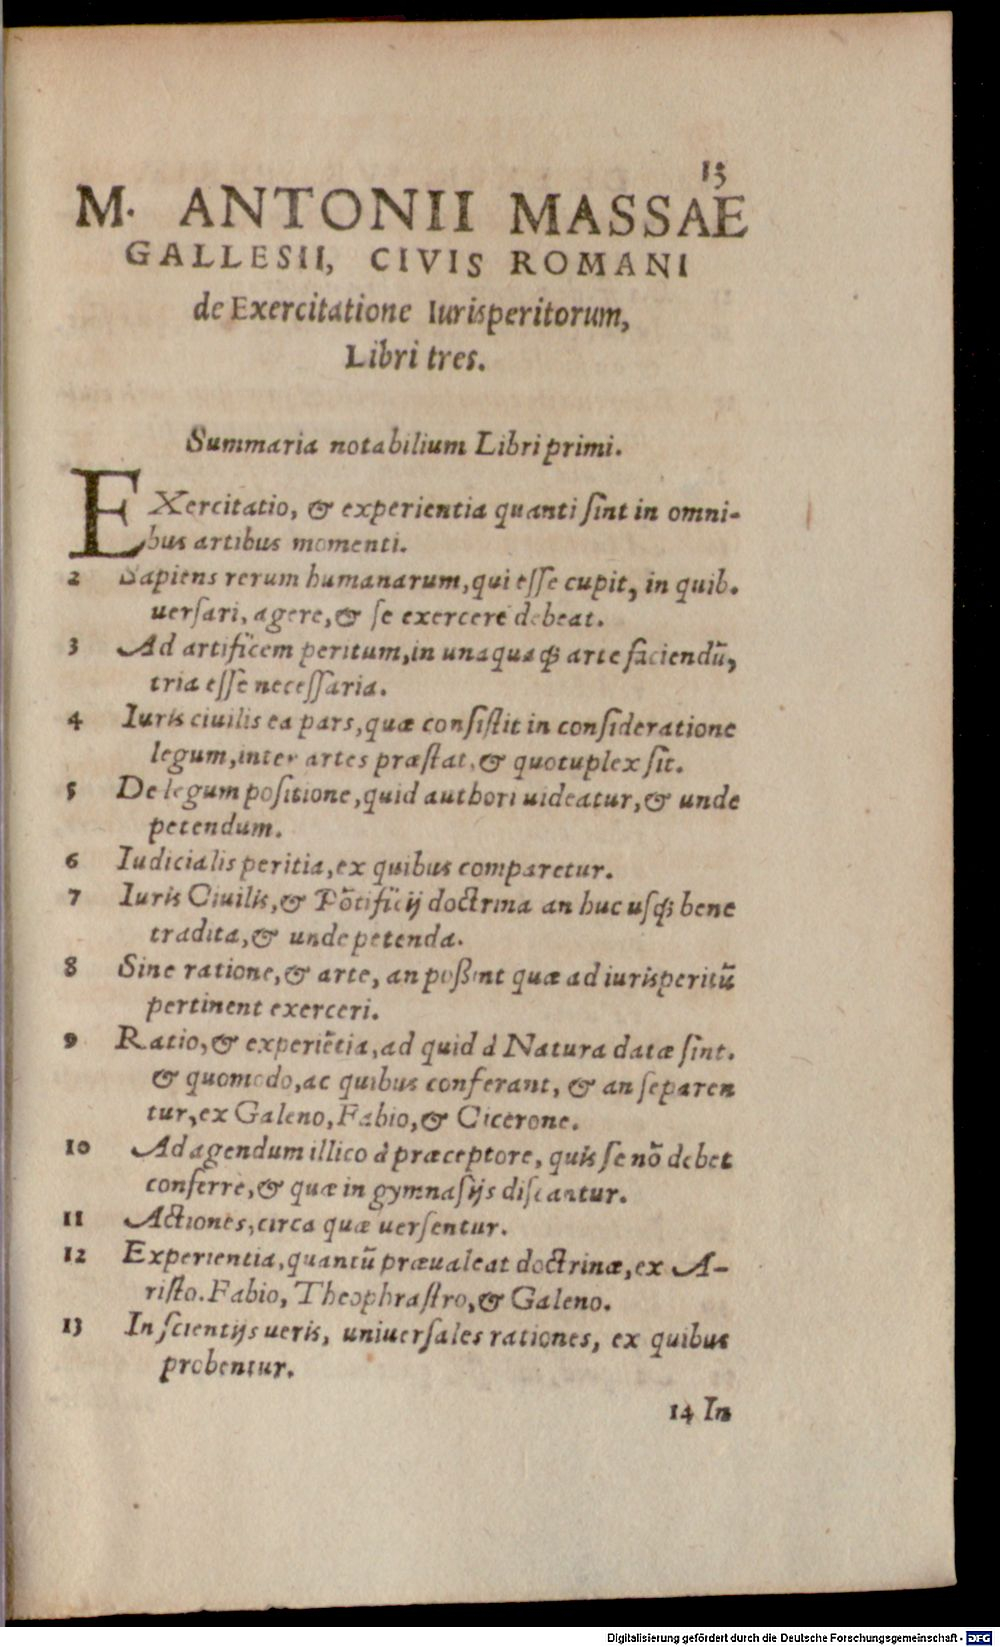 13
M. ANTONII MASSAE
GALLESII, CIVIS ROMANI
de Exercitatione Iurisperitorum,
Libri tres.
Summaria notabilium Libri primi.
EXercitatio, & experientia quanti ſint in omni-
bus artibus momenti.
2 Sapiens rerum humanarum, qui eſſe cupit, in quib.
uerſari, agere, & ſe exercere debeat.
3 Ad artificem peritum, in unaquaqꝫ arte faciendū,
tria eſſe neceſſaria.
4 Iuris ciuilis ea pars, quæ conſiſtit in conſideratione
legum, inter artes præſtat, & quotuplex ſit.
5 De legum poſitione, quid authori uideatur, & unde
petendum.
6 Iudicialis peritia, ex quibus comparetur.
7 Iuris Ciuilis, & Pōtificij doctrina an huc uſqꝫ bene
tradita, & unde petenda.
8 Sine ratione, & arte, an poßint quæ ad iurisperitū
pertinent exerceri.
9 Ratio, & experiētia, ad quid à Natura datæ ſint.
& quomodo, ac quibus conferant, & an ſeparen
tur, ex Galeno, Fabio, & Cicerone.
10 Ad agendum illico à præceptore, quis ſe nō debet
conferre, & quæ in gymnaſijs diſcantur.
11 Actiones, circa quæ uerſentur.
12 Experientia, quantū præualeat doctrinæ, ex A-
riſto. Fabio, Theophraſtro, & Galeno.
13 In ſcientijs ueris, uniuerſales rationes, ex quibus
probentur.
14 In
Digitalisierung gefördert durch die Deutsche Forschungsgemeinschaft - DFG